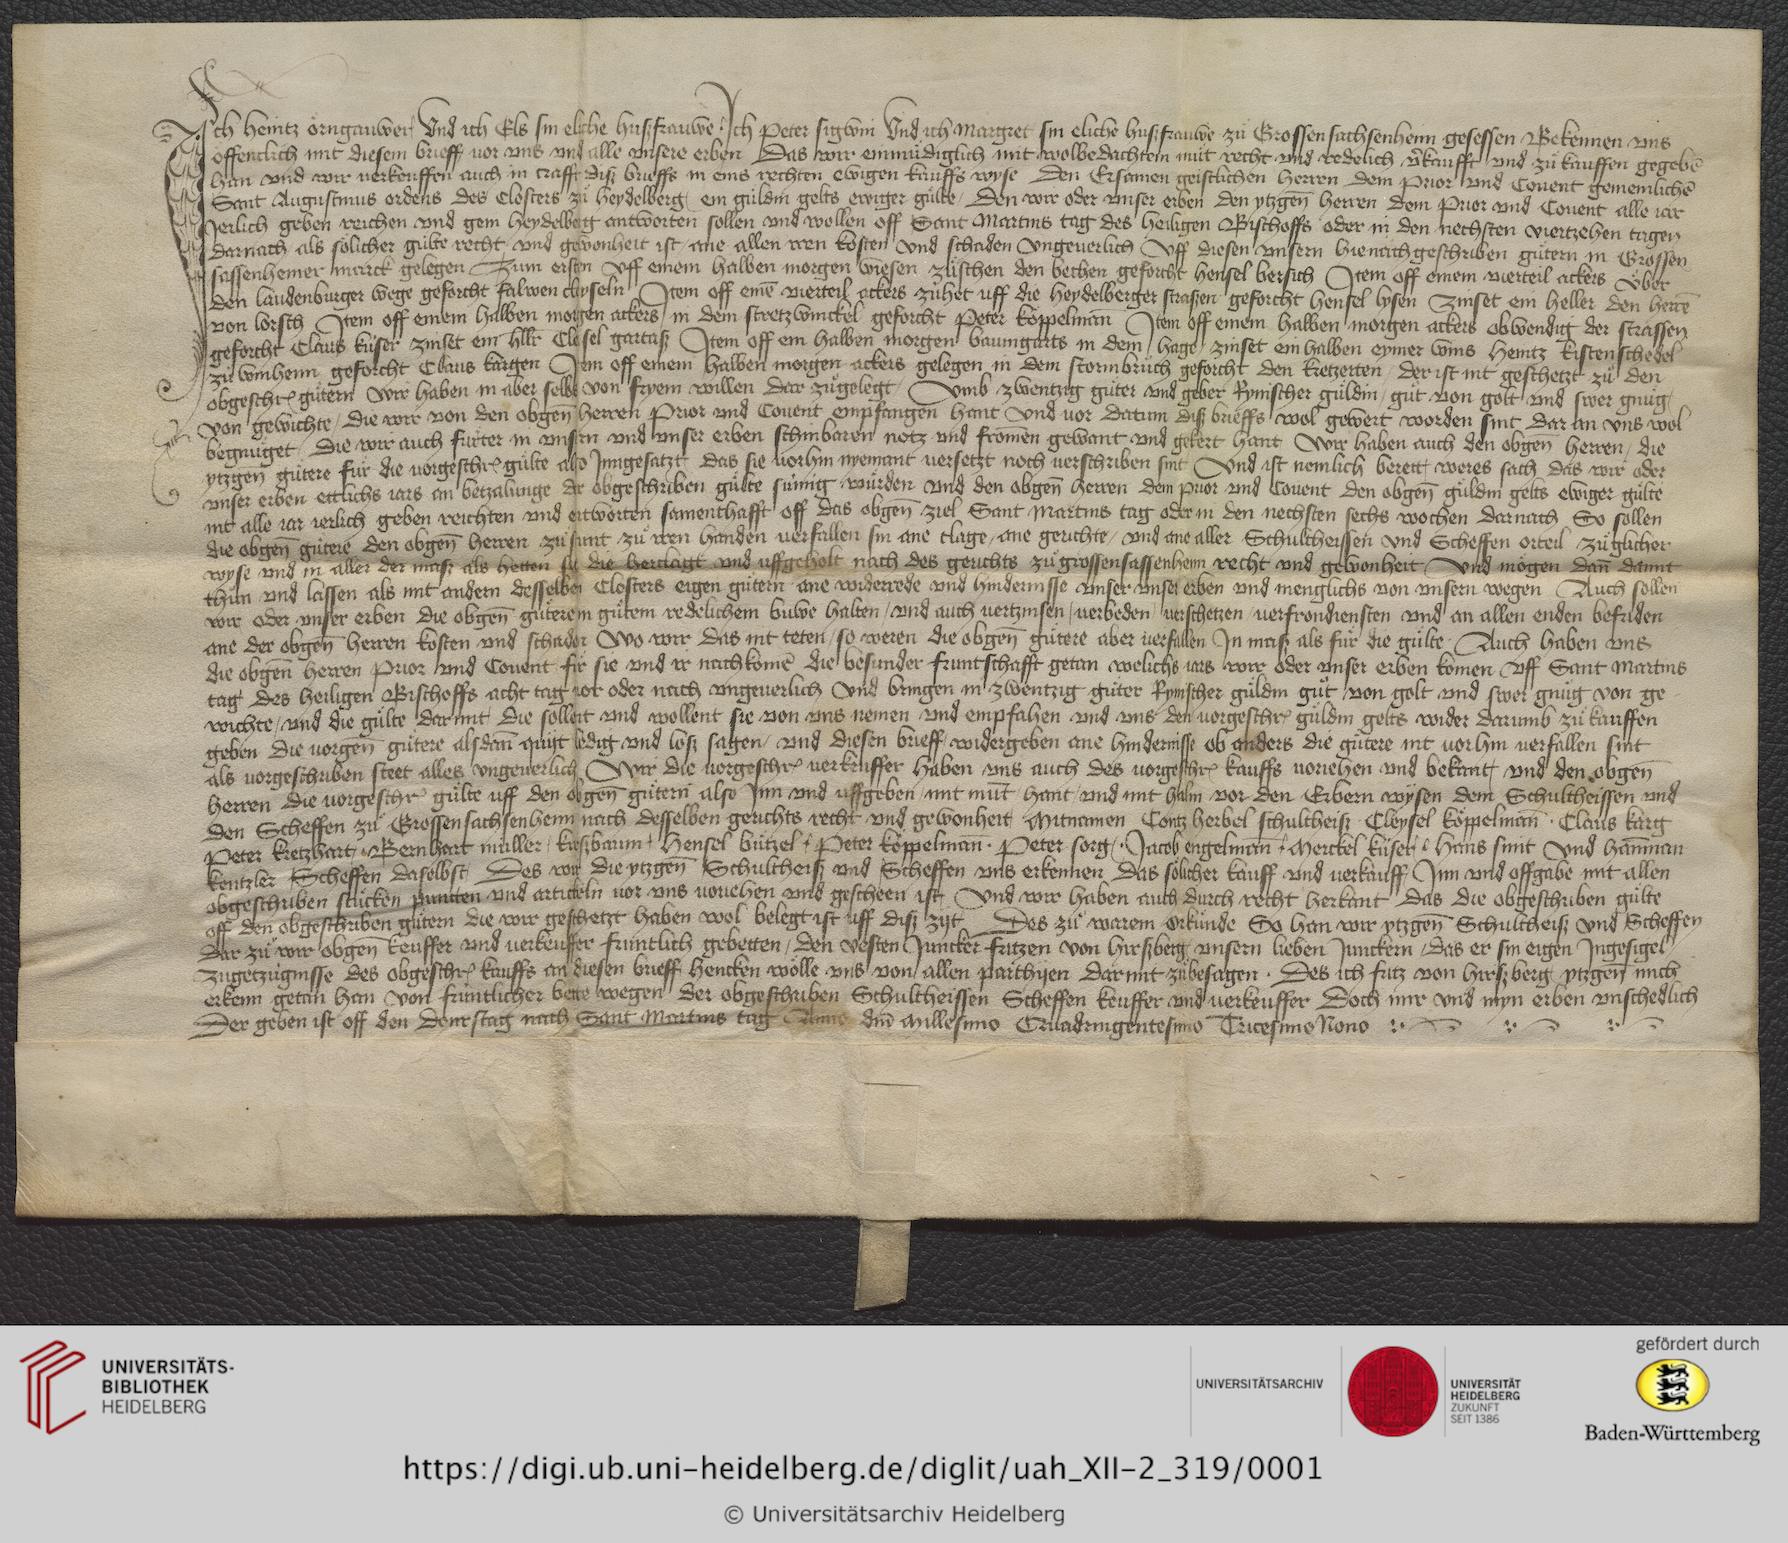 Ich heintz orngauwer Und ich Els sin eliche husfrauwe Ich Peter sigwin Und ich Margret sin eliche husfrauwe zů Grossensachsenheim gesessen Bekennen uns
offentlich mit diesem brieff vor uns und alle unsere erben Das wir einmüdiglich mit wolbedachtem müt recht und redelich v̄kaufft und zü kauffen gegebē
han und wir verkeuffen auch in crafft diß brieffs in eins rechten ewigen kauffs wyse Den Ersamen geistlichen herren dem Prior und Covent gemeinlichē
Sant Augustinus ordens des Closters zů heydelberg ein güldin gelts ewiger gülte Den wir oder unser erben den ytzgeñ herren dem Prior und Covent alle iar
Jerlich geben reichen und gein heydelberg antworten sollen und wollen off Sant Martins tag des heiligen Bischoffs oder in den nechsten viertzehen tagen
darnach als sölicher gülte recht und gewonheit ist ane allen iren kosten und schaden Ungeverlich Uff diesen unsern hienachgeschriben gütern in Grossen
sassenheimer marck gelegen Zum ersten Uff einem halben morgen wiesen züschen den bechen geforcht hensel bersich Item off einem vierteil ackers Über
den laudenburger wege geforcht falwen clyseln Item off einē vierteil ackers zühet uff die heydelberger straßen geforcht hensel lysen zinset ein heller den herrē
von lorsch Item off einem halben morgen ackers in dem stretzwinckel geforcht Peter köppelmañ Item off einem halben morgen ackers obwendig der strassen
geforcht Claus küser zinset ein hllr Clesel gartaß Item off ein halben morgen baumgarts in dem hage zinset ein halben eymer wins heintz kistenschedel
zü winheim geforcht Claus kargen Item off einem halben morgen ackers gelegen in dem stormbrüch geforcht den kretzerten der ist nit geschetzt zü den
obgeschr gütern Wir haben in aber selbs von fryem willen dar zügelegt Umb zwentzig güter und geber Rynischer güldin güt von golt und swer gnüg
von gewichte die wir von den obgeñ herren Prior und Covent empfangen hant Und vor datum diß brieffs wol gewert worden sint dar an uns wol
begnüget Die wir auch fürter in unsern und unser erben schinbaren notz und fromen gewant und gekert hant Wir haben auch den obgeñ herren die
ytzgeñ gütere für die vorgeschr gülte also Inngesatzt das sie vorhin nyemant versetzt noch verschriben sint Und ist nemlich berett weres sach das wir oder
unser erben ettlichs iars an betzalunge der obgeschriben gülte sümig würden und den obgeñ herren dem Prior und Covent den obgeñ güldin gelts ewiger gülte
nit alle iar ierlich geben reichten und entworten samenthafft off das obgeñ ziel Sant Martins tag oder in den nechsten sechs wochen darnach So sollen
die obgeñ gütere den obgeñ herren zü stunt zü iren handen verfallen sin ane clage ane gerichte und ane aller Schultheissen und Scheffen orteil zü glicher
wyse und in aller der maß als hetten sie die herclagt und uffgeholt nach des gerichts zü grossensassenheim recht und gewonheit Und mögen dañ damit
thün und lassen als mit andern desselben Closters eigen gütern ane widerrede und hindernisse unser unser erben und menglichs von unsern wegen Auch sollen
wir oder unser erben die obgeñ gütere in gütem redelichem buwe halten und auch vertzinsen verbeden verschetzen verfrondiensten und an allen enden befriden
ane der obgeñ herren kosten und schaden Wo wir das nit teten so weren die obgeñ gütere aber verfallen In maß als für die gülte Auch haben uns
die obgeñ herren Prior und Covent für sie und ir nachkomē die besunder fruntschafft getan welichs iars wir oder unser erben komen Uff Sant Martins
tag des heiligen Bischoffs acht tag vor oder nach ungeverlich Und bringen in zwentzig güter Rynischer güldin güt von golt und swer gnüg von ge
wichte und die gülte darmit Die sollent und wollent sie von uns nemen und empfahen und uns den vorgeschr güldin gelts wider darumb zü kauffen
geben die vorgeñ gütere alsdañ quijt ledig und loß sagen und diesen brieff widergeben ane hindernisse ob anders die gütere nit vorhin verfallen sint
als vorgeschriben steet alles ungeverlich Wir die vorgeschr verkeuffer haben uns auch des vorgeschr kauffs voriehen und bekant und den obgeñ
herren die vorgeschr gülte uff den obgeñ gütern also Inn und uffgeben mit münt hant und mit halm vor den Erbern wysen dem Schultheissen und
den Scheffen zü Grossensachsenheim nach desselben gerichts recht und gewonheit Mitnamen Contz herbel schultheiß Cleysel köppelmañ Claus karg
Peter kretzhart Bernhart müller kießbaum Hensel bützel Peter köppelmañ Peter sorg Jacob engelmañ Merckel küser Hans smit Und hañman
kentzler Scheffen daselbst Des wir die ytzgeñ Schultheiß und Scheffen uns erkennen Das sölicher kauff und verkauff Inn und offgabe mit allen
obgeschriben stücken puncten und artickeln vor uns voriehen und gescheen ist Und wir haben auch durch recht herkant Das die obgeschriben gülte
off den obgeschriben gütern die wir geschetzt haben wol belegt ist uff diß zijt Des zü warem orkünde So han wir ytzgeñ Schultheiß und Scheffen
dar zü wir obgeñ keuffer und verkeuffer fruntlich gebetten den vesten Juncker fritzen von hirßberg unsern lieben Junckern das er sin eigen Ingesigel
zügetzügnisse des obgeschr kauffs an diesen brieff hencken wölle uns von allen parthijen darmit zübesagen Des ich fritz von hirßberg ytzgeñ mich
erkenn getan han von früntlicher bette wegen der obgeschriben Schultheissen Scheffen keuffer und verkeuffer Doch mir und myn erben unschedlich
Der geben ist off den Donrstag nach Sant Martins tag Anno dñi Millesimo Quadringentesimo Tricesimo Nono
UNIVERSITÄTS-
BIBLIOTHEK
HEIDELBERG
UNIVERSITÄTSARCHIV
UNIVERSITÄT
HEIDELBERG
ZUKUNFT
SEIT 1386
gefördert durch
Baden-Württemberg
https://digi.ub.uni-heidelberg.de/diglit/uah_XII-2_319/0001
© Universitätsarchiv Heidelberg